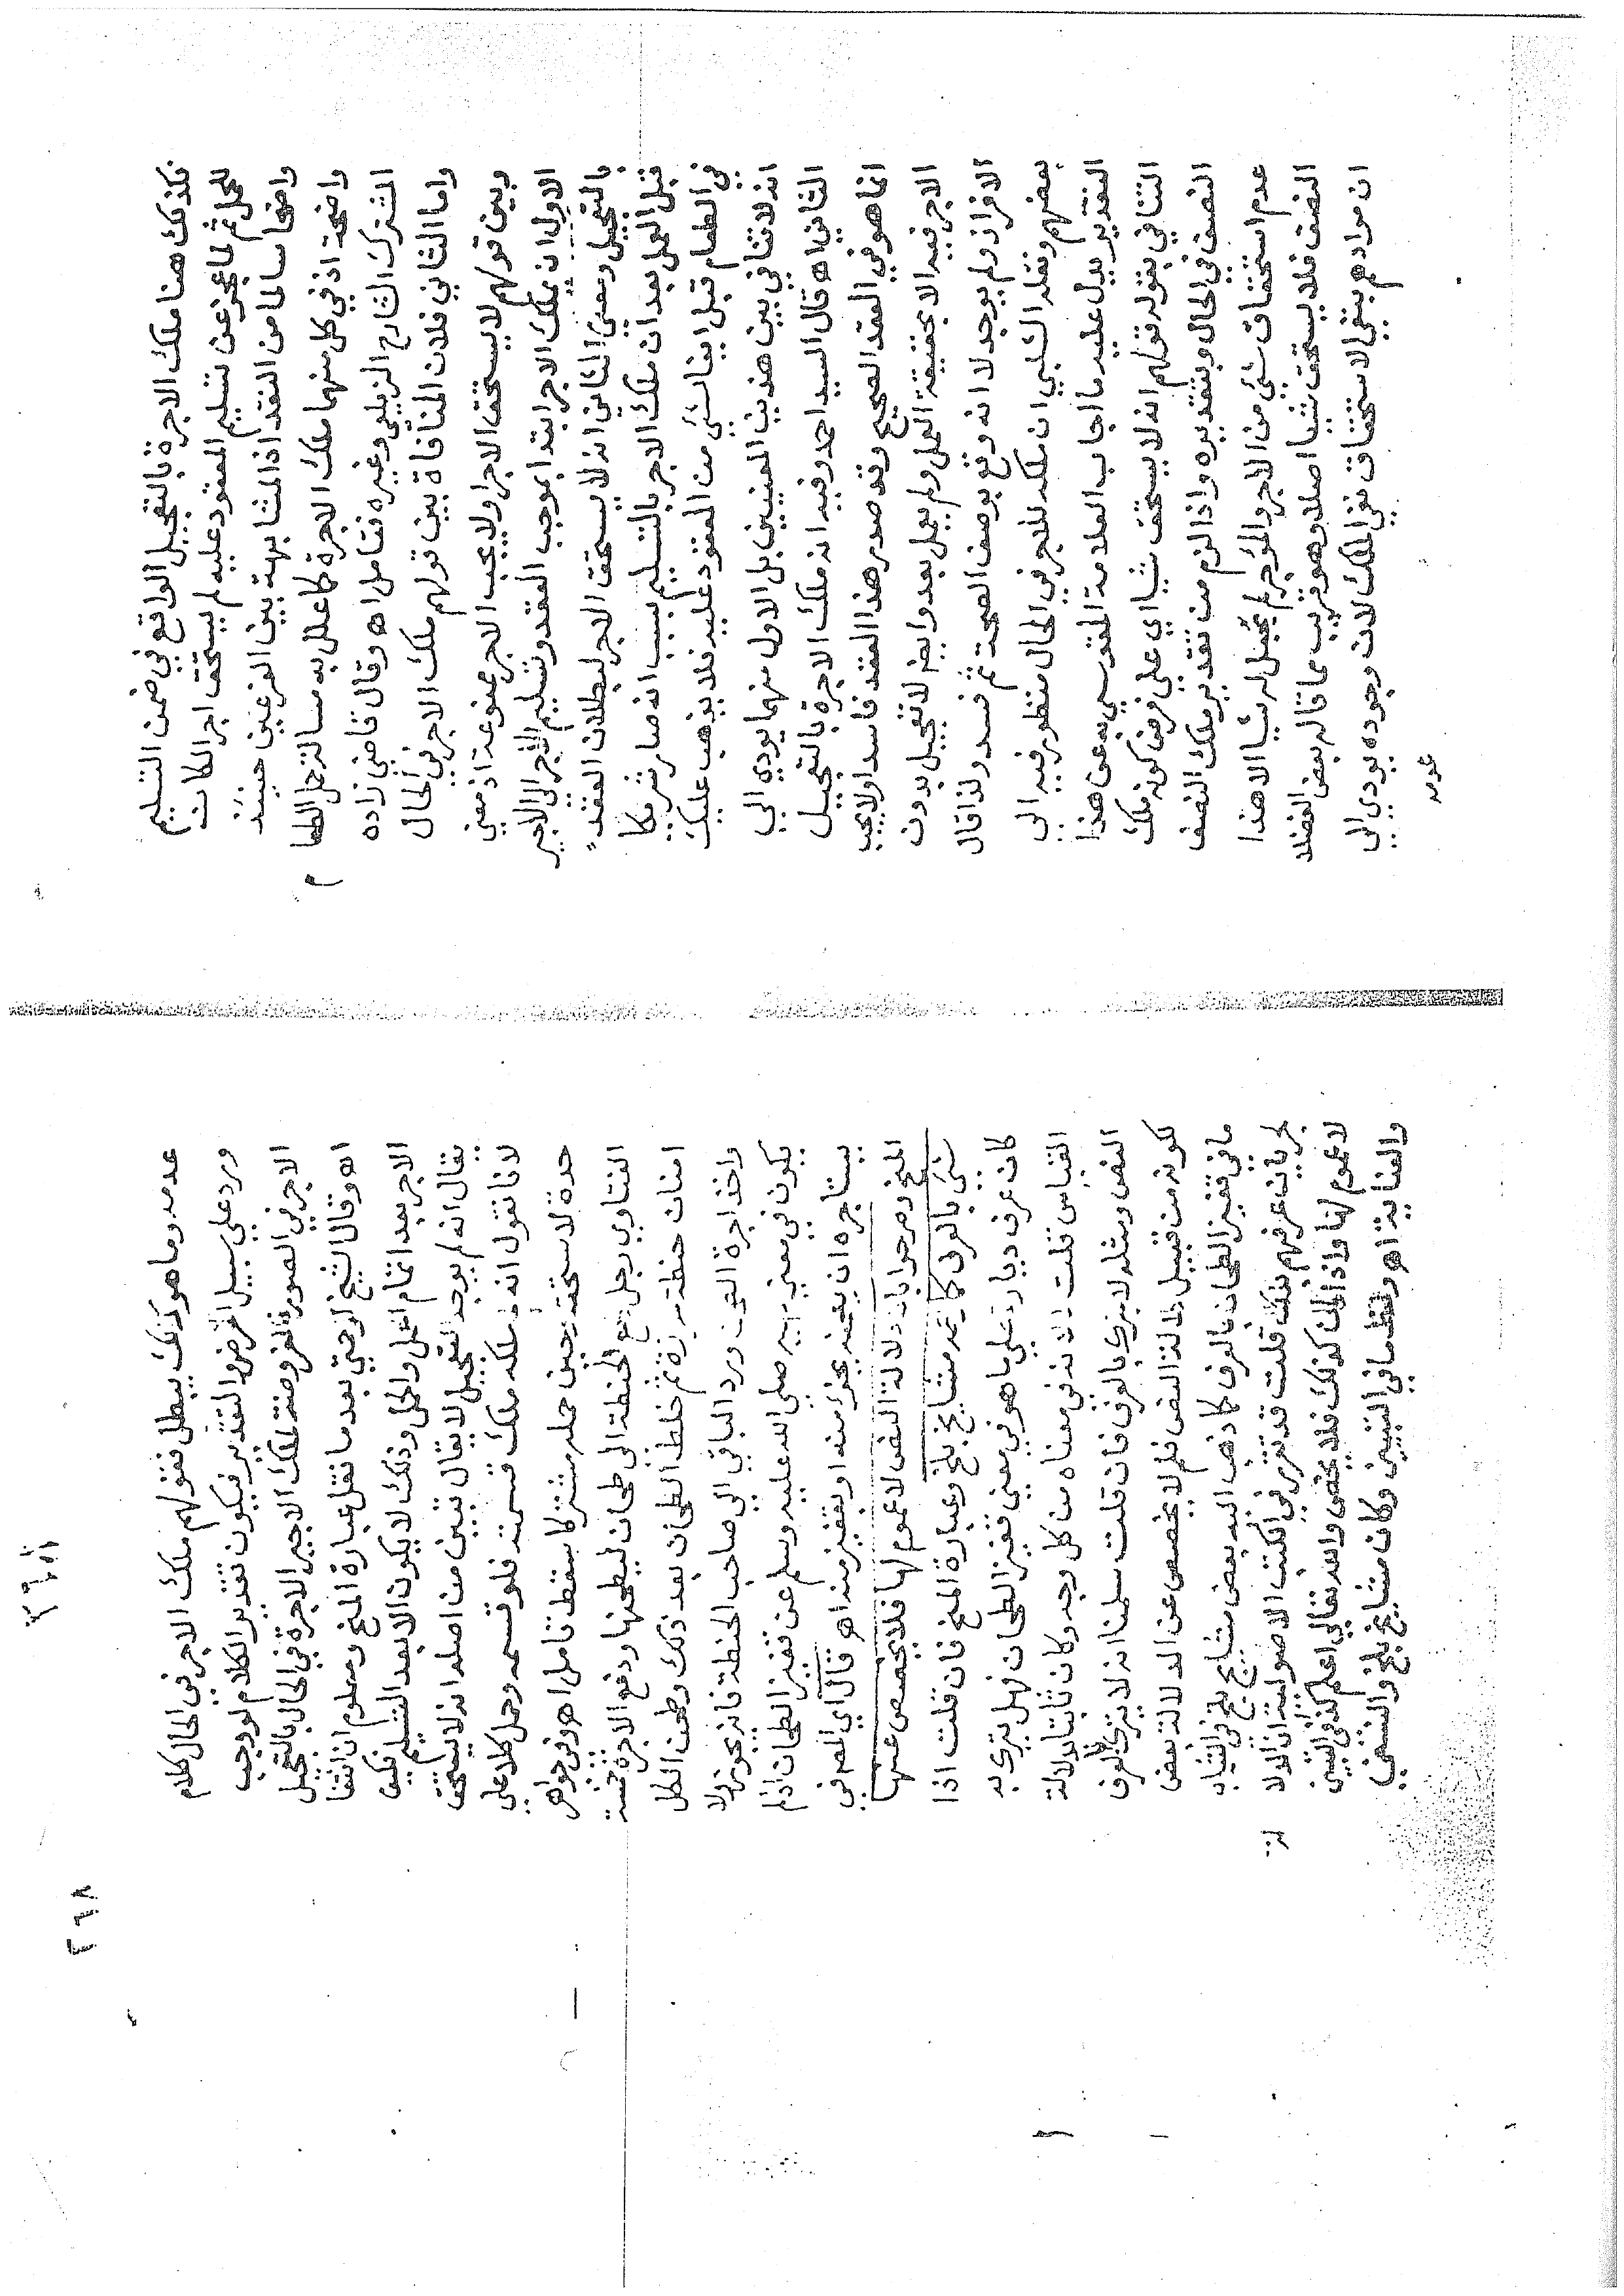 فكذلك هنا ملك الاجرة بالتعجيل الواقع في ضمن التسليم
للحمل ثم لما عجز عن تسليم المعقود عليه لم يستحق اجرا لكانت
واضحا سالما من النقد اذ المشابهة بين الفرعين حينئذ
واضحة اذ في كل منهما ملك الاجرة كما علل به مسالة حمل الطعا
م
المشترك الشارح الزيلعي وغيره فتامل اه وقال قاضي زاده
واما الثاني فلان المنافاة بين قولهم ملك الاجر في الحال
وبين قولهم لا يستحق الاجر ولا يجب الاجر ممنوعة اذ معني
الاول ان يملك الاجر ابتدا بموجب العقد وتسليم الاجر الي الاجير
بالتعجيل ومعني الثاني انه لا يستحق الاجر لبطلان العقد
قبل العمل بعد ان ملك الاجر بالتسليم بسبب انه صار شريكا
في الطعام قبل ايفا شي من المعقود عليه فلا يذهب عليك
انه لا تنافي بين هذين المعنيين بل الاول منهما يودي الي
الثاني اه قال السيد احمد وفيه انه ملك الاجرة بالتعجيل
انما هو في العقد الصحيح وقد صدر هذا العقد فاسدا ولا يجب
الاجر فيه الا بحقيقة العمل ولم يعمل بعد وايضا لا تعجيل بدون
الافراز ولم يوجد لا انه وقع بوصف الصحة ثم فسد ولذا قال
بعضهم ونقله الشلبي ان ملكه للاجر في الحال منظور فيه الي
التقدير يدل عليه ما اجاب العلامة المقدسي به عن هذا
التنافي بقوله قولهم انه لا يستحق شيا اي علي فرض كونه ملك
النصف في الحال وبتقديره واذا لزم من تقدير ملك النصف
عدم استحقاق شي من الاجر والمؤجر لم يجعل له شيا الا هذا
النصف فلا يستحق شيا اصلا وهو قريب مما قاله بعض الفضلا
ان مرادهم بنفي الاستحقاق نفي الملك لان وجوده يودي الي
عدمه
٢٦٨
عدمه وما هو كذلك يبطل فقولهم ملك الاجر في الحال كلام
ورد علي سبيل الفرض والتقدير فيكون تقدير الكلام لو وجب
الاجر في الصورة المفروضة لملك الاجير الاجرة في الحال بالتعجيل
اه وقال الشيخ الرحمتي بعد ما نقل عبارة المنح ومعلوم ان انتفا
الاجر بعد اتمام العمل والحمل وذلك لا يكون الا بعد التسليم فكيف
يقال انه لم يوجد التعجيل لا يقال تبين من اصله انه لا يستحق
لانا نقول انه ملكه ملك قسمة فلو قسمه وحمل كلا علي
حدة لاستحقه وحين حمله مشتركا سقط تامل اه وفي جواهر
الفتاوي رجل دفع الحنطة الي طحان ليطحنها ودفع الاجرة خمسة
امنان حنطة بزرة ثم خلط الطحان بعد ذلك وطحن الكل
واخذ اجرة الثمن ورد الباقي الي صاحب الحنطة فانه يجوز ولا
يكون في معني نهيه صلي الله عليه وسلم عن قفيز الطحان اذ لم
يستاجره ان يطحنه بجزء منه او بقفيز منه اه قال اي المص في
المنح ومر جوابا بان دلالة النص لا عموم لها فلا يخصص عنها
شي بالعرف كما زعمه مشايخ بلخ وعبارة المنح فان قلت اذا
كان عرف ديارنا علي ما هو في معني قفيز الطحان فهل يترك به
القياس قلت لا لانه في معناه من كل وجه وكان ثابتا بدلالة
النص ومثله لا يترك بالعرف فان قلت سلمنا انه لا يترك بالعرف
لكونه من قبيل دلالة النص فلم لا يخصص عن الدلالة بعض
ما في قفيز الطحان بالعرف كما ذهب اليه بعض مشايخ بلخ في الثياب
لجريان عرفهم بذلك قلت قد تقرر في الكتب الاصولية ان الدلا
لة
لا عموم لها واذا كان كذلك فلا يخص والله تعالي اعلم كذا في التبيين
والعناية اه ولفظ ما في التبيين وكان مشايخ بلخ والنسفي